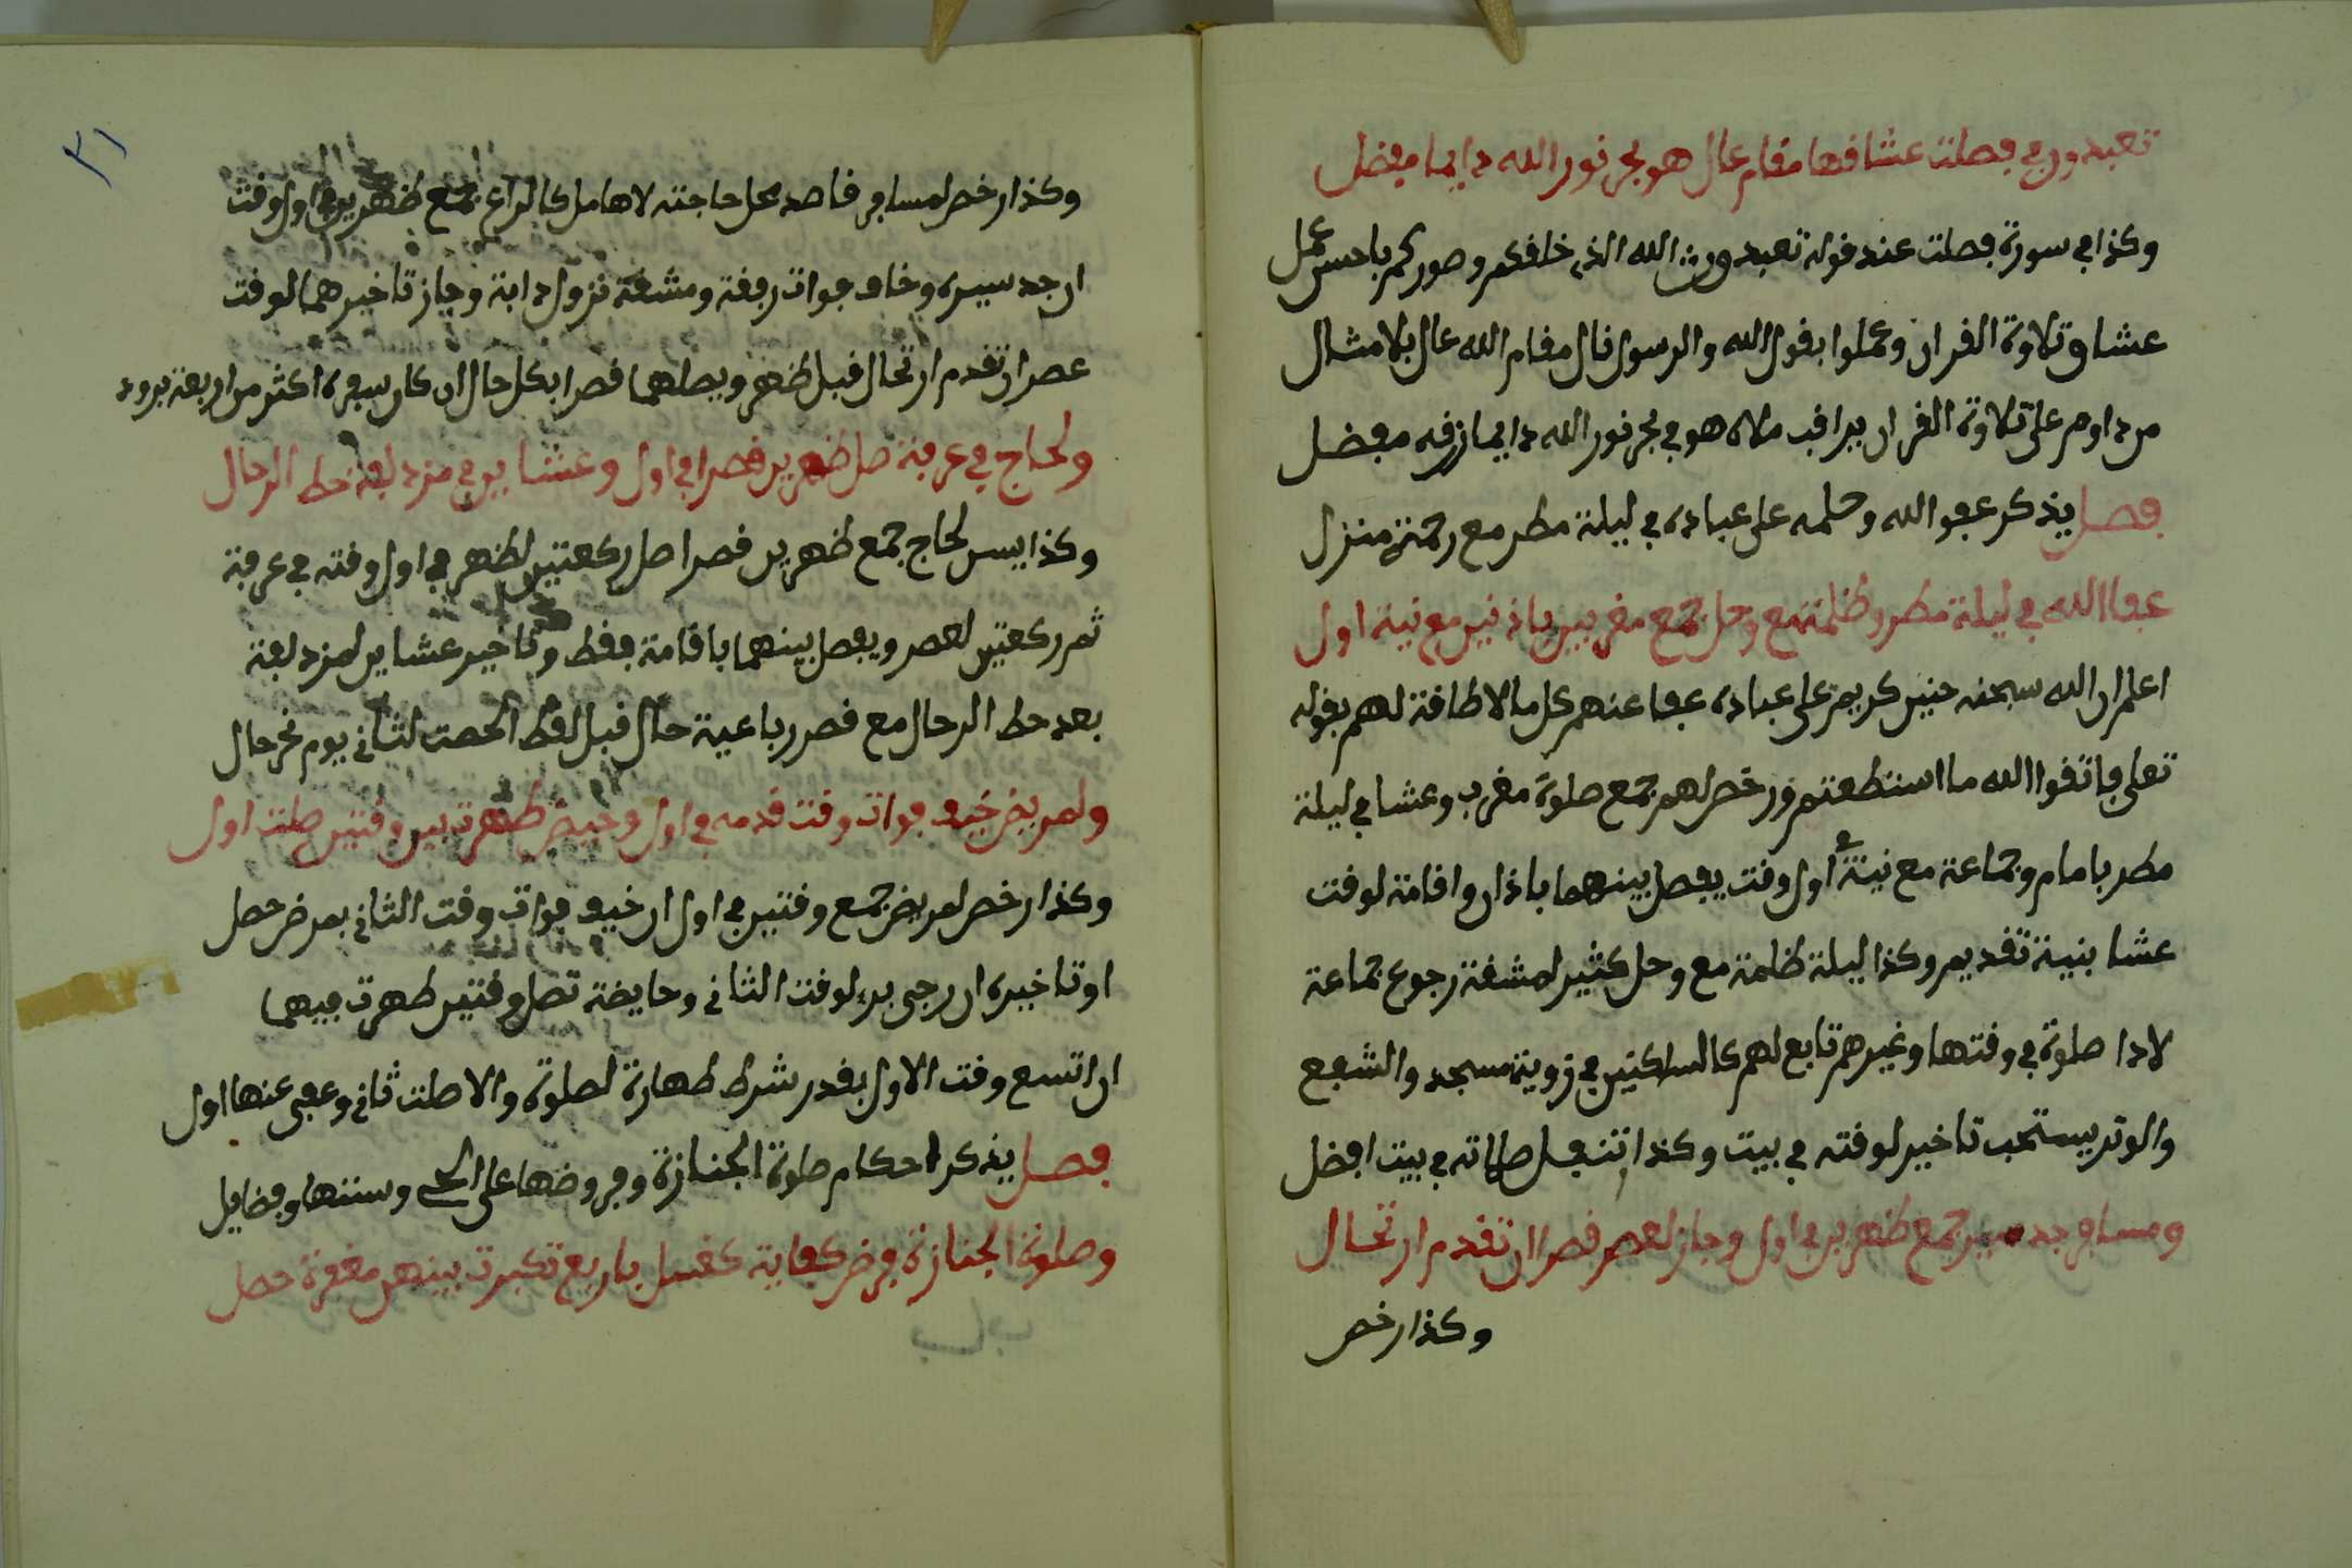 تعبدون في فصلت عشاقها مقام عال هو بحر نور الله دايما مفضل
وكذا في سورة فصلت عند قوله تعبدون الله الذي خلقكم وصوركم باحسن عمل
عشاق تلاوة القران وعملوا بقول الله والرسول نال مقام الله عال بلا مثال
من داوم على تلاوة القران يراقب ملاه هو في بحر نور الله دايما زفه مفضل
فصل يذكر عفو الله وحلمه على عباده في ليلة مطر مع رحمته منزل
عفا الله في ليلة مطر وظلمة مع وحل جمع مغربين باذنين مع نية اول
اعلم ان الله سبحنه حنين كريم على عباده عفا عنهم كل ما لا طاقة لهم بقوله
تعلى فاتقوا الله ما استطعتم ورخص لهم جمع صلوة مغرب وعشا في ليلة
مطر بامام وجماعة مع نية في اول وقت يفصل بينهما باذان واقامة لوقت
عشا بنية تقديم وكذا ليلة ظلمة مع وحل كثير لمشقة رجوع جماعة
لادا صلوة في وقتها وغيرهم تابع لهم كالساكنين في زوية مسجد والشفع
والوتر يستحب تاخير لوقته في بيت وكذا تنفل صلاته في بيت افضل
ومسافر جد سير جمع ظهرين في اول وجاز لعصر قصرا ان تقدم ارتحال
وكذا رخص
٣١
وكذا رخص لمسافر قاصد محل حاجته لا هامل كالراع جمع ظهرين في اول وقت
ان جد سيره وخاف فوات رفقة ومشقة نزول دابة وجاز تاخيرهما لوقت
عصر ان تقدم ارتحال قبل ظهر ويصلهما قصرا بكل حال ان كان سفره اكثر من اربعة برود
ولحاج في عرفة صل ظهرين قصرا في اول وعشاين في مزدلفة حط الرحال
وكذا يسن لحاج جمع ظهرين قصرا صل ركعتين لظهر في اول وقته في عرفة
ثم ركعتين لعصر ويفصل بينهما باقامة فقط وتاخير عشاين لمزدلفة
بعد حط الرحال مع قصر رباعية حال قبل لقط الحصت لثاني يوم نحر حال
ولمريض خيف فوات وقت قدمه في اول وحيض طهرت بين وقتين صلت اول
وكذا رخص لمريض جمع وقتين في اول ان خيف فوات وقت الثاني بمرض حصل
او تاخيره ان رجى برء لوقت الثاني وحايضة تصل وقتين طهرت فيهما
ان اتسع وقت الاول بقدر شرط طهارة لصلوة والا صلت ثاني وعفى عنها اول
فصل يذكر احكام صلوة الجنازة وفروضها على الحي وسننها وفضايل
وصلوة الجنازة فرض كفاية كغسل باربع تكبرت بينهن مغفرة حصل